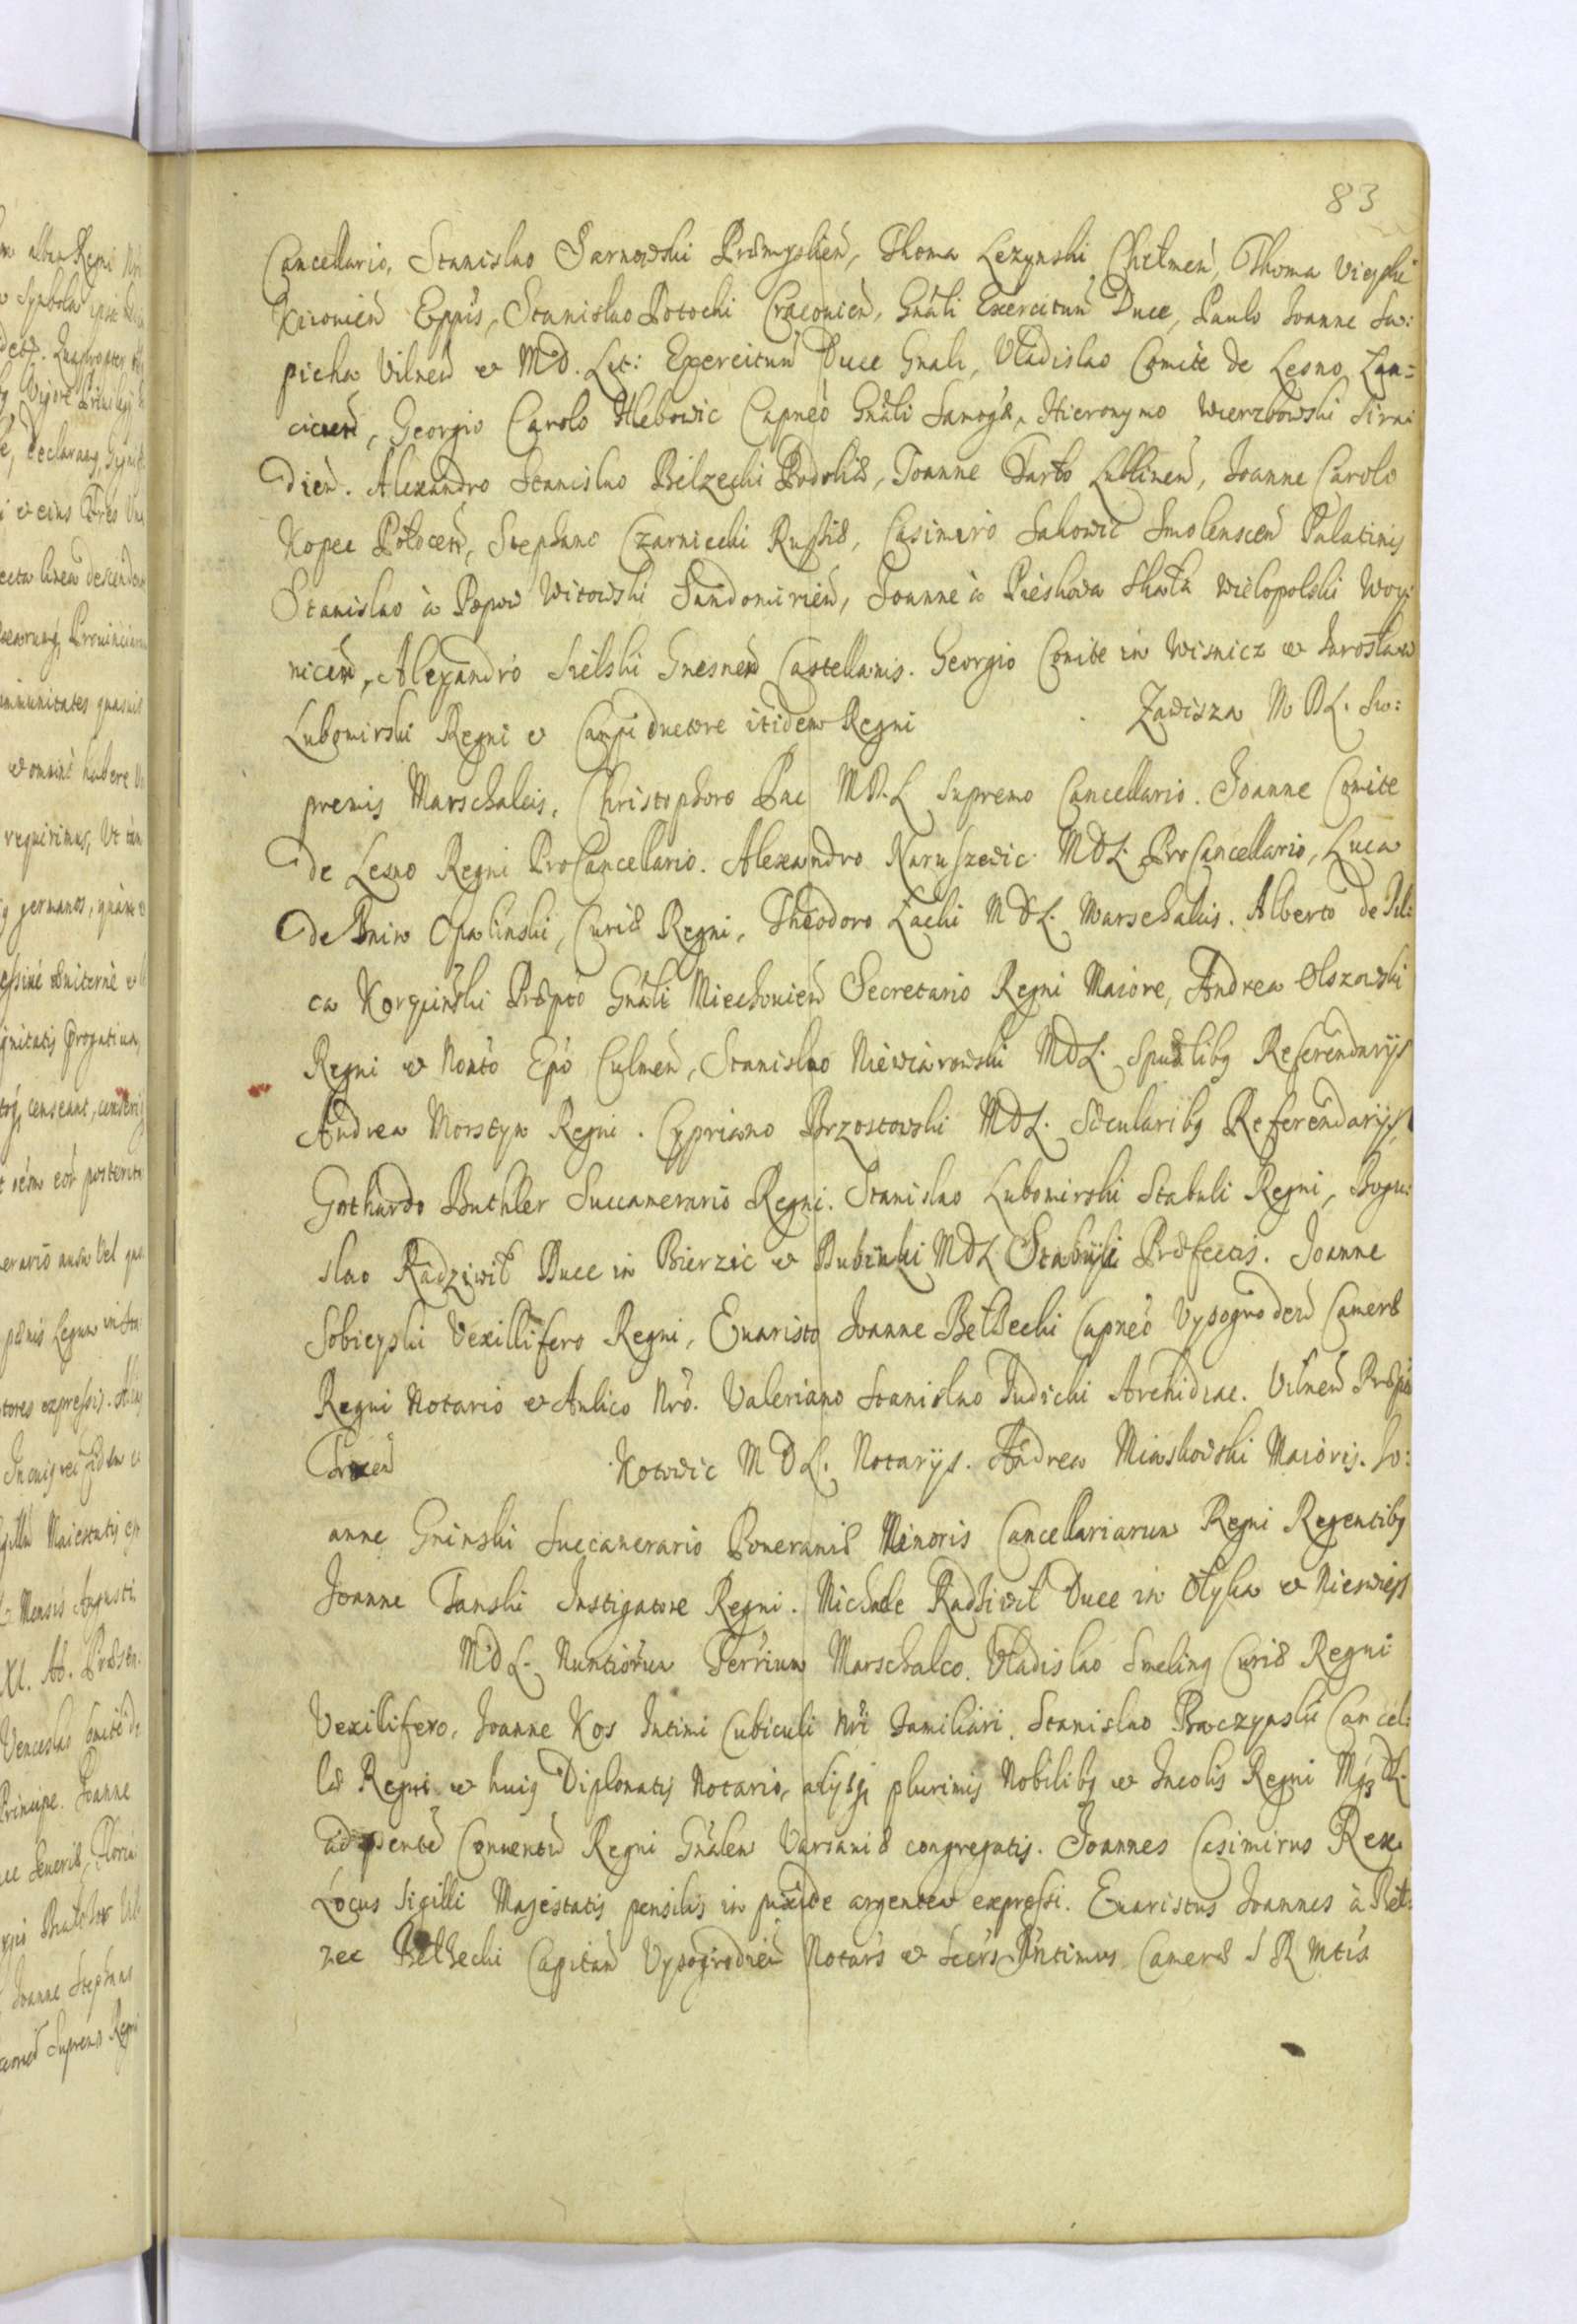 83
Cancellario, Stanislao Sarnowski Præmyslien, Thoma Lezynski Chelmen, Thoma Vieyski
Kiiovien Eppis, Stanislao Potocki Cracovien, Gnali Exercituu Duce, Paulo Joanne Sa:
pieha Vilnen et M D. Lit: Exercituu Duce Gnali, Vladislao Comite de Lesno Lan=
cicien, Georgio Carolo Hlebowic Capneo Gnali Samog:æ, Hieronymo Wierzbowski Sira:
dien. Alexandro Stanislao Bełzecki Podoliæ, Joanne Tarło Lublinen, Joanne Carolo
Kopec Polocen, Stephano Czarniecki Russiæ, Casimiro Sakowic Smolenscen Palatinis
Stanislao à Popow Witowski Sandomirien, Joanne à Pieskowa Skała Wielopolski Woy:
nicen, Alexandro Sielski Gnesnen Castellanis. Georgio Comite in Wisnicz et Jarosław
Lubomirski Regni et Campi ductore itidem Regni Zawisza M D L. Su:
premis Marschalcis, Christophoro Pac M D. L Supremo Cancellario. Joanne Comite
de Lesno Regni ProCancellario. Alexandro Naruszewic M D L. ProCancellario, Luca
de Bnin Opalinski, Curiæ Regni, Theodoro Lacki M D L. Marschalcis. Alberto de Pil:
ca Koryciński Præpto Gnali Miechovien Secretario Regni Maiore, Andrea Olszowski
Regni et Nonto Epo Culmen, Stanislao Niewiarowski M D L. Spualibq Referendarijs
Andrea Morstyn Regni. Cypriano Brzostowski M D L. Sæcularibq Referendarijs,
Gothardo Buthler Succamerario Regni. Stanislao Lubomirski Stabuli Regni, Bogu:
slao Radziwił Duce in Bierze et Dubinki M D L Stabuli Præfectis. Joanne
Sobieyski Vexillifero Regni, Evaristo Joanne Bełzecki Capneo Vysogroden Cameræ
Regni Notario et Aulico Nro. Valeriano Stanislao Judicki Archidiac. Vilnen Præpo
Trocen Kotowic M D L. Notarijs. Andrea Miaskowski Maioris. Jo:
anne Gninski Succamerario Pomeraniæ Minoris Cancellariarum Regni Regentibq
Joanne Tanski Instigatore Regni. Michaele Radzivił Duce in Ołyka et Nieswiess
M D L. Nuntioru Terriuu Marschalco. Vladislao Smeling Curiæ Regni
Vexilifero, Joanne Kos Intimi Cubiculi Nri Familiari. Stanislao Buczynski Cancel:
læ Regni et huiq Diplomatis Notario, alijsq plurimis Nobilibq et Incolis Regni M q D L.
ad psente Conventu Regni Gnalem Varsaviæ congregatis. Joannes Casimirus Rex
Locus Sigilli Majestatis pensilis in pixide argentea expressi. Evaristus Joannes à Bełz:
zec Bełzecki Capitan Vysogrodien Notars et Secrs Intimus Cameræ S R Mtis